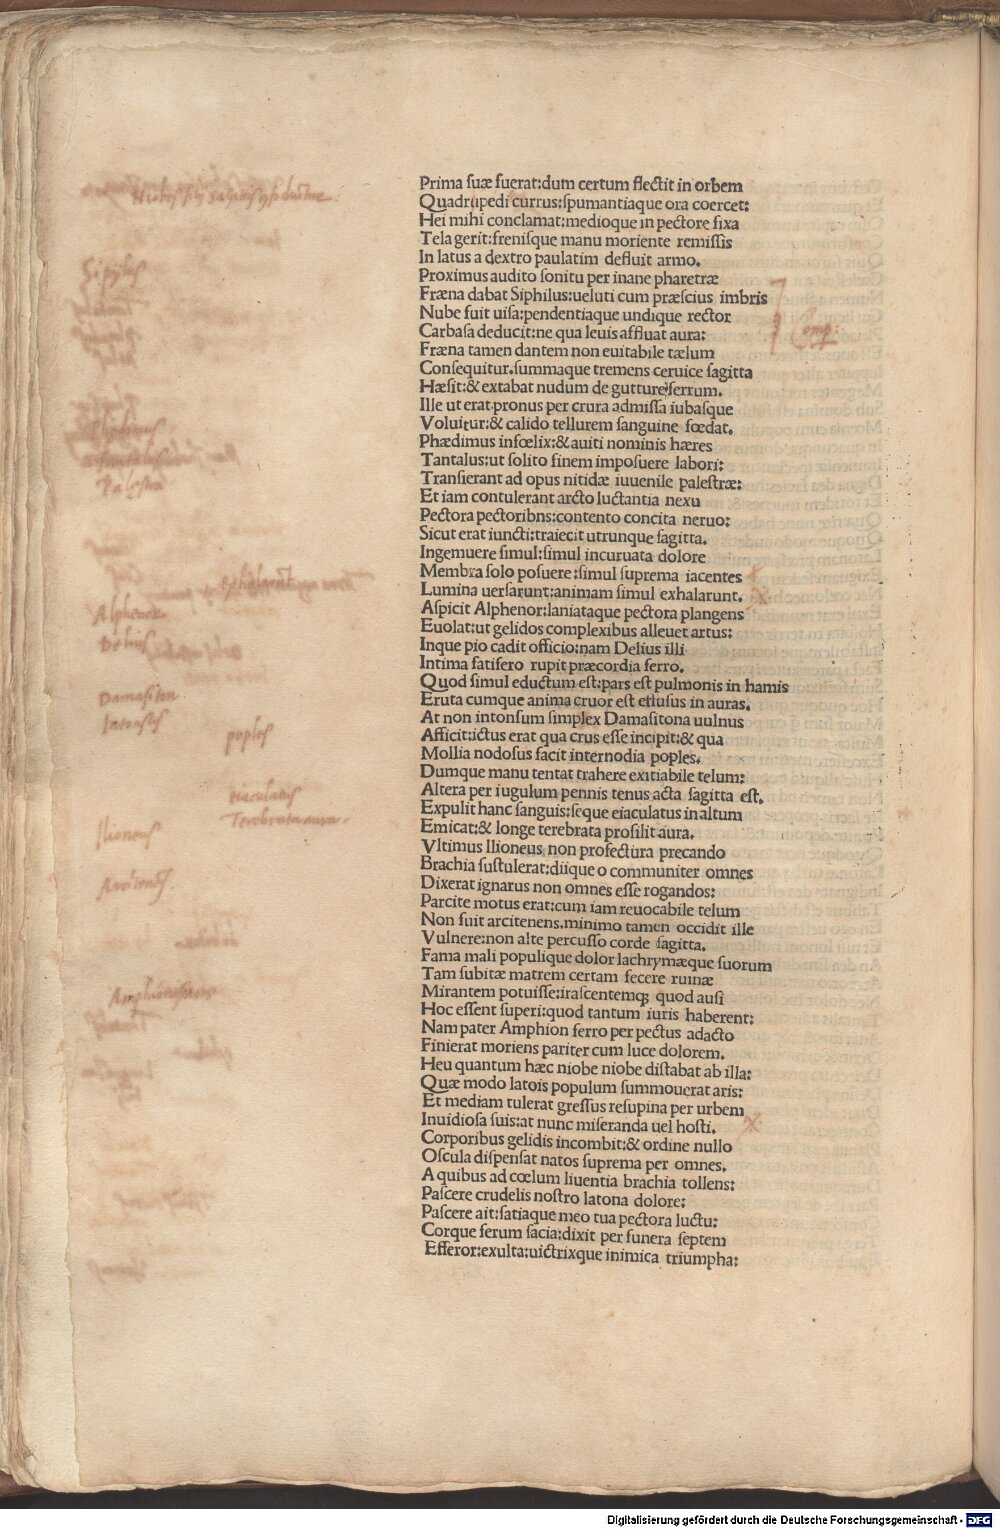 Prima ſuæ fuerat:dum certum flectit in orbem
Quadrupedi currus:ſpumantiaque ora coercet:
Hei mihi conclamat:medioque in pectore fixa
Tela gerit:freniſque manu moriente remiſſis
In latus a dextro paulatim defluit armo.
Proximus audito ſonitu per inane pharetræ
Fræna dabat Siphilus:ueluti cum præſcius imbris
Nube fuit uiſa:pendentiaque undique rector
Carbaſa deducit:ne qua leuis affluat aura:
Comp:
Fræna tamen dantem non euitabile tælum
Conſequitur.ſummaque tremens ceruice ſagitta
Hæſit:& extabat nudum de gutture ferrum.
Ille ut erat pronus per crura admiſſa iubaſque
Voluitur:& calido tellurem ſanguine fœdat.
Phædimus infœlix:& auiti nominis hæres
Tantalus:ut ſolito finem impoſuere labori:
Tranſierant ad opus nitidæ iuuenile paleſtræ:
Et iam contulerant arcto luctantia nexu
Pectora pectoribns:contento concita neruo:
Sicut erat iuncti:traiecit utrunque ſagitta.
Ingemuere ſimul:ſimul incuruata dolore
Membra ſolo poſuere:ſimul ſuprema iacentes
Lumina uerſarunt:animam ſimul exhalarunt.
Aſpicit Alphenor:laniataque pectora plangens
Euolat:ut gelidos complexibus alleuet artus:
Inque pio cadit officio:nam Delius illi
Intima fatifero rupit præcordia ferro.
Quod ſimul eductum eſt:pars eſt pulmonis in hamis
Eruta cumque anima cruor eſt effuſus in auras.
At non intonſum ſimplex Damaſitona uulnus
Afficit:ictus erat qua crus eſſe incipit:& qua
Mollia nodoſus facit internodia poples.
Dumque manu tentat trahere exitiabile telum:
Altera per iugulum pennis tenus acta ſagitta eſt.
Expulit hanc ſanguis:ſeque eiaculatus in altum
Emicat:& longe terebrata proſilit aura.
Vltimus Ilioneus non profectura precando
Brachia ſuſtulerat:diique o communiter omnes
Dixerat ignarus non omnes eſſe rogandos:
Parcite motus erat:cum iam reuocabile telum
Non fuit arcitenens.minimo tamen occidit ille
Vulnere:non alte percuſſo corde ſagitta.
Fama mali populique dolor lachrymæque ſuorum
Tam ſubitæ matrem certam fecere ruinæ
Mirantem potuiſſe:iraſcentemq; quod auſi
Hoc eſſent ſuperi:quod tantum iuris haberent:
Nam pater Amphion ferro per pectus adacto
Finierat moriens pariter cum luce dolorem.
Heu quantum hæc niobe niobe diſtabat ab illa:
Quæ modo latois populum ſummouerat aris:
Et mediam tulerat greſſus reſupina per urbem
Inuidioſa ſuis:at nunc miſeranda uel hoſti.
Corporibus gelidis incombit:& ordine nullo
Oſcula diſpenſat natos ſuprema per omnes.
A quibus ad cœlum liuentia brachia tollens:
Paſcere crudelis noſtro latona dolore:
Paſcere ait:ſatiaque meo tua pectora luctu:
Corque ferum ſacia:dixit per funera ſeptem
Efferor:exulta:uictrixque inimica triumpha:
Sipylus
Phedimus
Palestra
exhalarūt
Alphenor
Delius
Damasiton
Intonsus
poples
eiaculatus
Terebrata aura.
Ilioneus
Arcitenēs
Digitalisierung gefördert durch die Deutsche Forschungsgemeinschaft - DFG